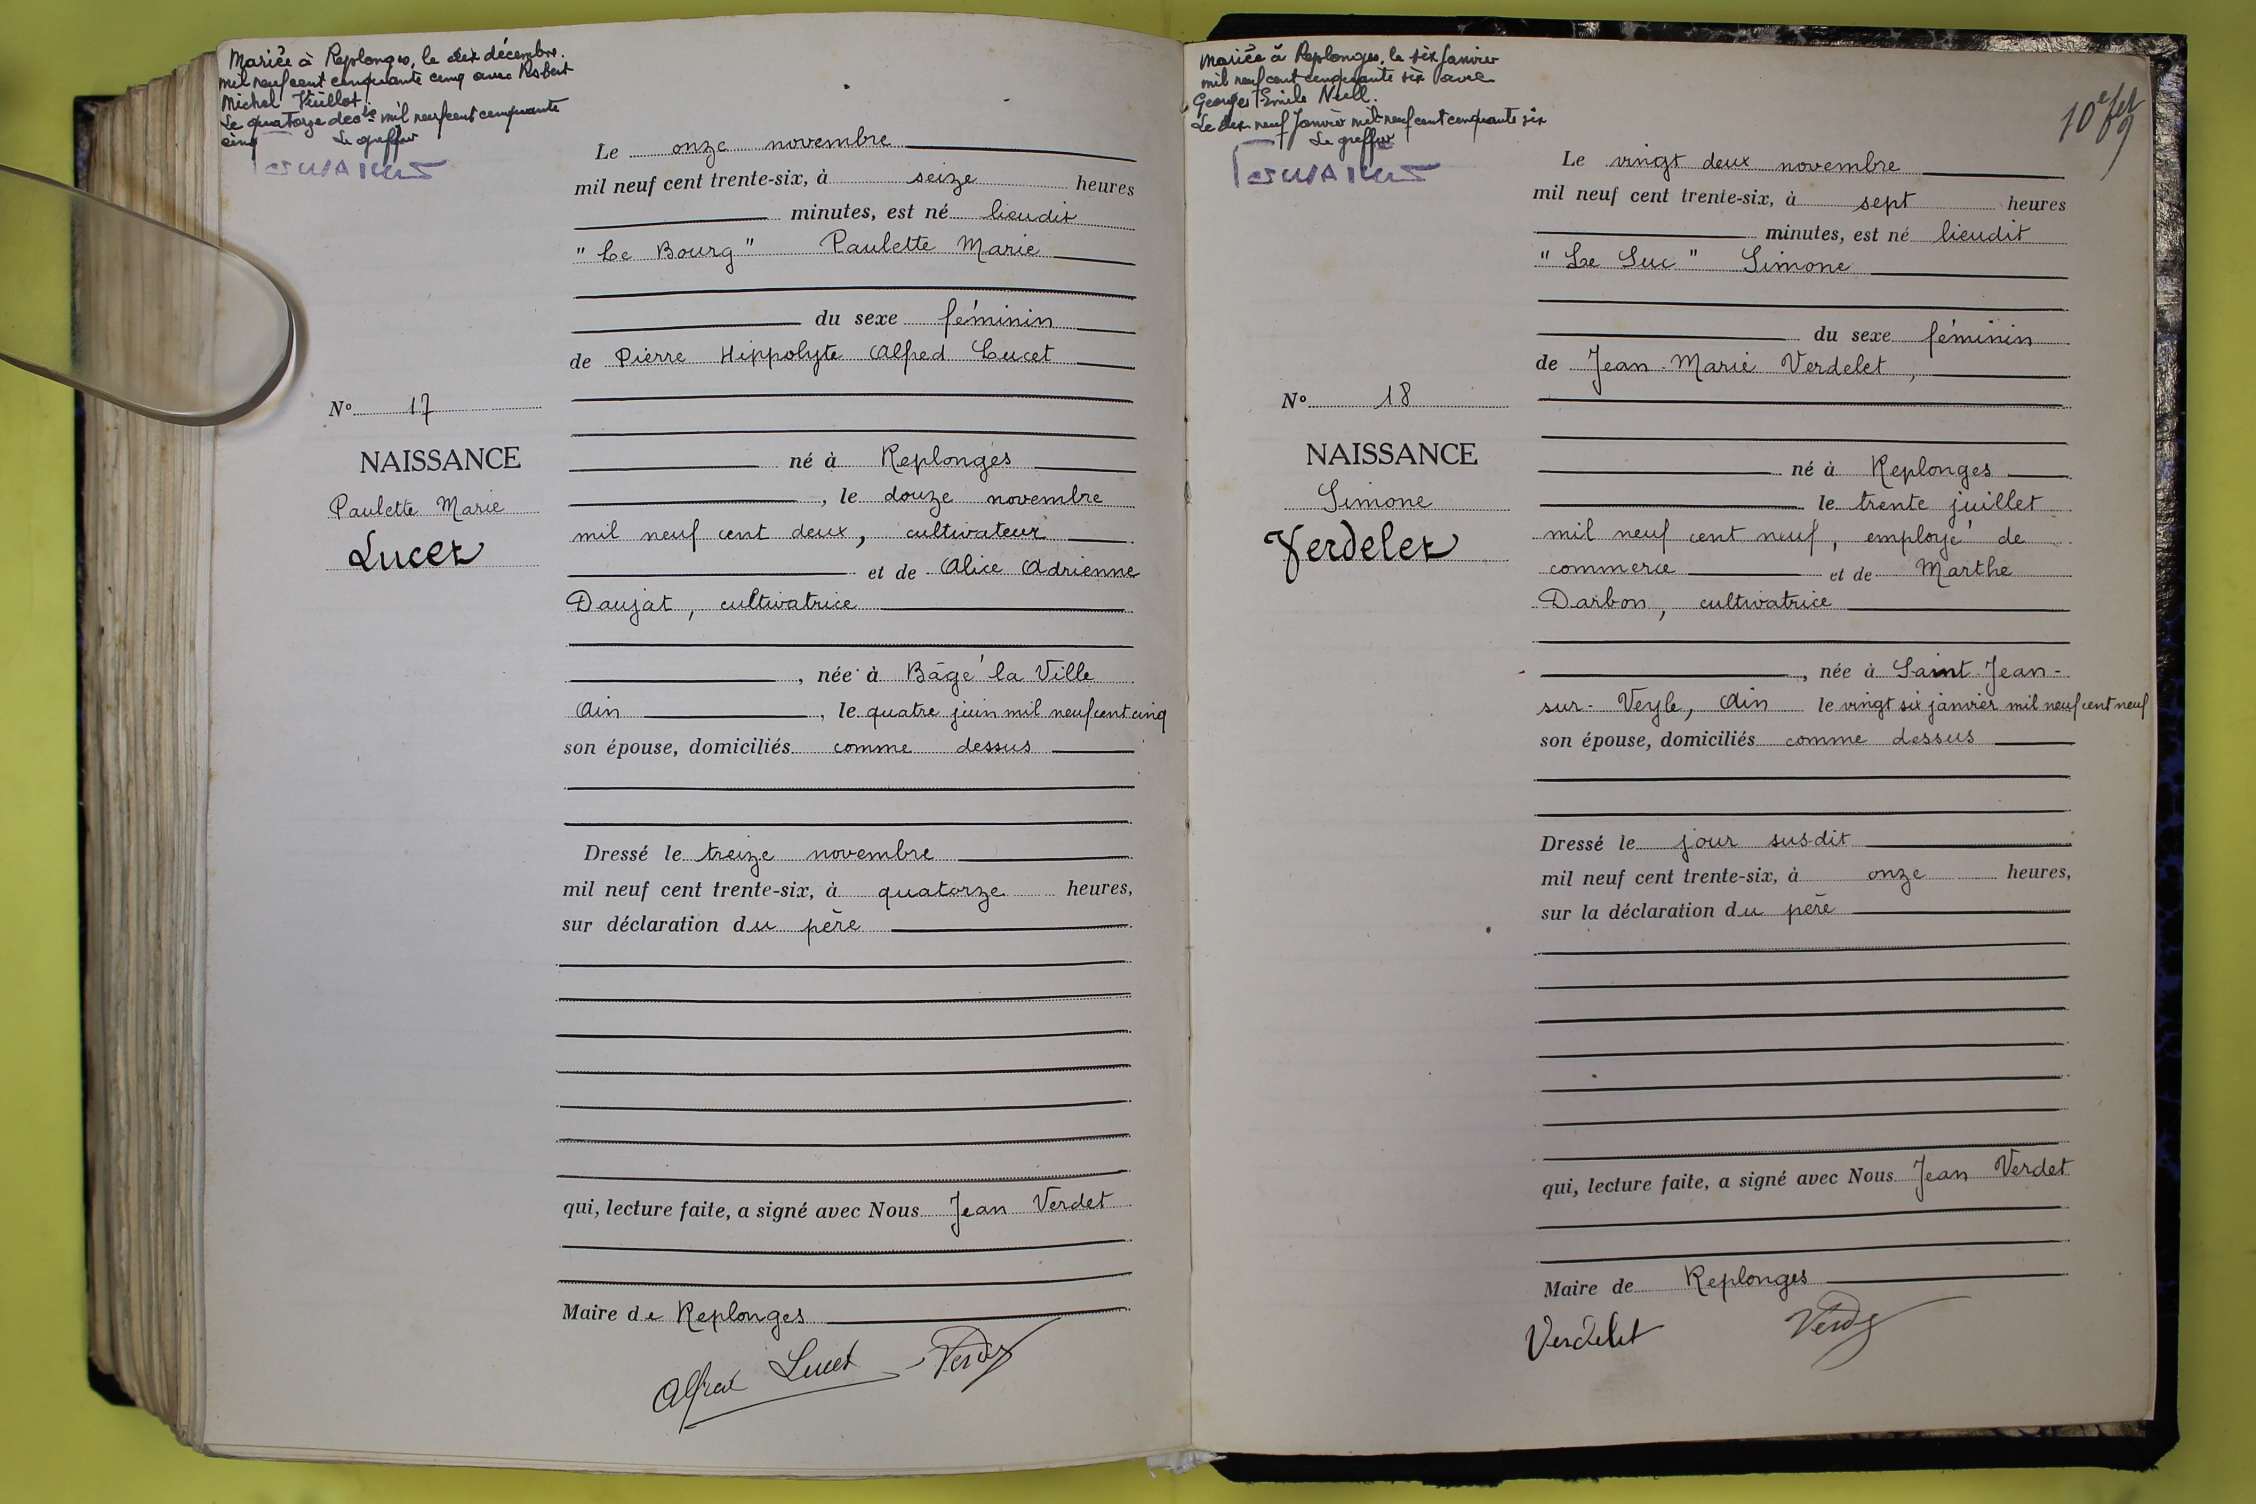 Mariée à Replonges, le dix décembre
mil neuf cent cinquante cinq avec Robert
Michel Vuillot
Le quatorze décbre mil neuf cent cinquante
cinq Le greffier
Le onze novembre
mil neuf cent trente-six, à seize heures
minutes, est né lieudit
" Le Bourg " Paulette Marie
du sexe féminin
de Pierre Hippolyte Alfred Lucet
N° 17
NAISSANCE
Paulette Marie
Lucet
né à Replonges
, le douze novembre
mil neuf cent deux, cultivateur
et de Alice Adrienne
Daujat, cultivatrice
, née à Bâgé la Ville
Ain , le quatre juin mil neuf cent cinq
son épouse, domiciliés comme dessus
Dressé le treize novembre
mil neuf cent trente-six, à quatorze heures,
sur déclaration du père
qui, lecture faite, a signé avec Nous Jean Verdet
Maire de Replonges
Alfred Lucet Verdet
Mariée à Replonges, le six Janvier
mil neuf cent cinquante six avec
Georges Emile Nuell.
Le dix neuf Janvier mil neuf cent cinquante six
Le greffier
10e
Le vingt deux novembre
mil neuf cent trente-six, à sept heures
minutes, est né lieudit
" Le Suc " Simone
du sexe féminin
de Jean-Marie Verdelet,
N° 18
NAISSANCE
Simone
Verdelet
né à Replonges
le trente juillet
mil neuf cent neuf, employé de
commerce et de Marthe
Darbon, cultivatrice
, née à Saint-Jean-
sur-Veyle, Ain le vingt six janvier mil neuf cent neuf
son épouse, domiciliés comme dessus
Dressé le jour susdit
mil neuf cent trente-six, à onze heures,
sur la déclaration du père
qui, lecture faite, a signé avec Nous Jean Verdet
Maire de Replonges
Verdelet Verdet